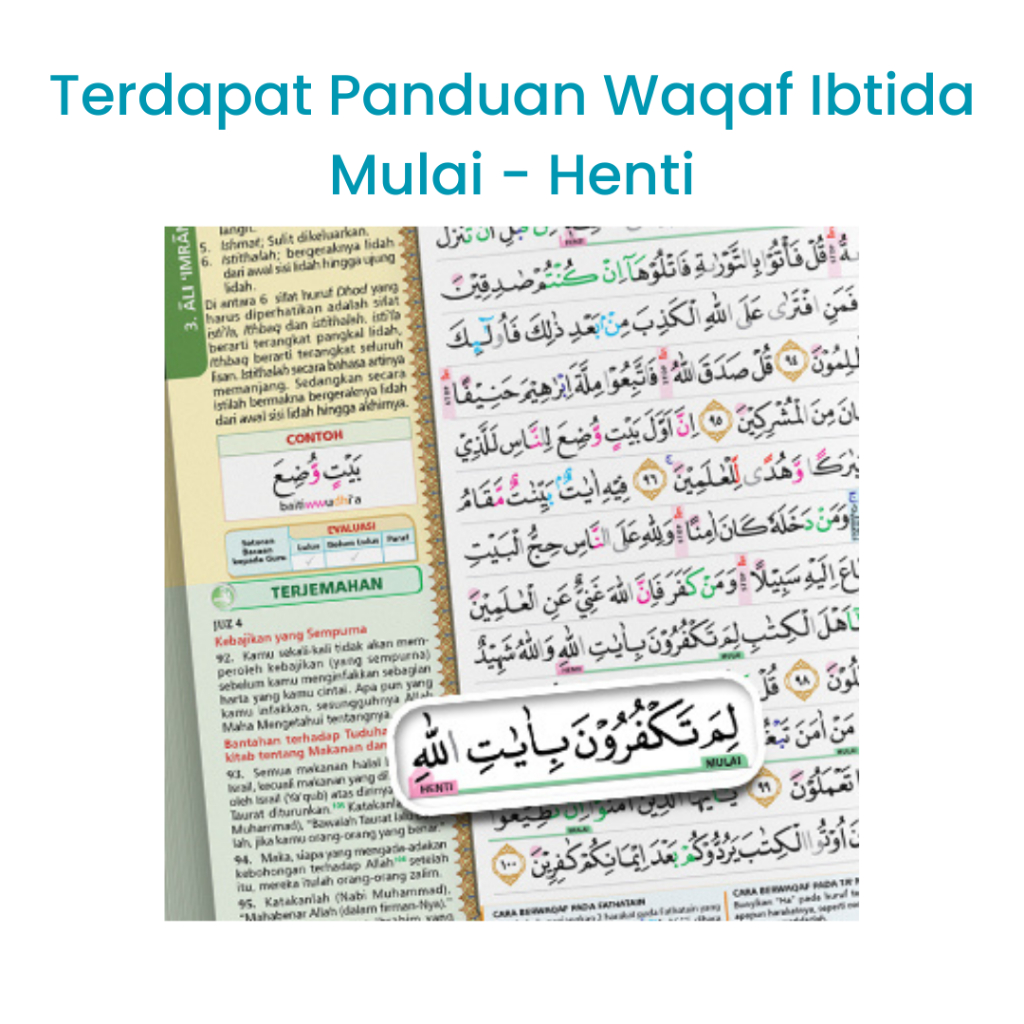 Terdapat Panduan Waqaf Ibtida
Mulai - Henti
3. ĀLI 'IMRĀN
langit.
5. Ishmat; Sulit dikeluarkan.
6. Istithalah; bergeraknya lidah
dari awal sisi lidah hingga ujung
lidah.
Di antara 6 sifat huruf Dhod yang
harus diperhatikan adalah sifat
isti'la, ithbaq dan istithalah, isti'la
berarti terangkat pangkal lidah,
ithbaq berarti terangkat seluruh
lisan. Istithalah secara bahasa artinya
memanjang. Sedangkan secara
istilah bermakna bergeraknya lidah
dari awal sisi lidah hingga akhirnya.
CONTOH
بَيْتٍ وُّضِعَ
baitiwwudhi'a
EVALUASI
Setoran
Bacaan
kepada Guru
Lulus
Belum Lulus
Paraf
TERJEMAHAN
JUZ 4
Kebajikan yang Sempurna
92. Kamu sekali-kali tidak akan mem-
peroleh kebajikan (yang sempurna)
sebelum kamu menginfakkan sebagian
harta yang kamu cintai. Apa pun yang
kamu infakkan, sesungguhnya Allah
Maha Mengetahui tentangnya.
Bantahan terhadap
kitab tentang Makanan
93. Semua makanan halal
Israil, kecuali makanan yang
oleh Israil (Ya'qub) atas dirinya
Taurat diturunkan. Katakanlah
Muhammad), "Bawalah Taurat lalu
lah, jika kamu orang-orang yang benar."
94. Maka, siapa yang mengada-adakan
kebohongan terhadap Allah setelah
itu, mereka itulah orang-orang zalim.
95. Katakanlah (Nabi Muhammad),
"Mahabenar Allah (dalam firman-Nya)."
اَنْ تُنَزَّلَ
قُلْ فَأْتُوْا بِالتَّوْرٰىةِ فَاتْلُوْهَآ اِنْ كُنْتُمْ صٰدِقِيْنَ
فَمَنِ افْتَرٰى عَلَى اللّٰهِ الْكَذِبَ مِنْۢ بَعْدِ ذٰلِكَ فَاُولٰۤىِٕكَ
٩٤ قُلْ صَدَقَ اللّٰهُ فَاتَّبِعُوْا مِلَّةَ اِبْرٰهِيْمَ حَنِيْفًا
مِنَ الْمُشْرِكِيْنَ ٩٥ اِنَّ اَوَّلَ بَيْتٍ وُّضِعَ لِلنَّاسِ لَلَّذِيْ
وَّهُدًى لِّلْعٰلَمِيْنَ ٩٦ فِيْهِ اٰيٰتٌۢ بَيِّنٰتٌ مَّقَامُ
وَمَنْ دَخَلَهٗ كَانَ اٰمِنًا وَلِلّٰهِ عَلَى النَّاسِ حِجُّ الْبَيْتِ
اِلَيْهِ سَبِيْلًا وَمَنْ كَفَرَ فَاِنَّ اللّٰهَ غَنِيٌّ عَنِ الْعٰلَمِيْنَ
الْكِتٰبِ لِمَ تَكْفُرُوْنَ بِاٰيٰتِ اللّٰهِ وَاللّٰهُ شَهِيْدٌ
HENTI
MULAI
٩٨ قُلْ
لِمَ تَكْفُرُوْنَ بِاٰيٰتِ اللّٰهِ
MULAI
HENTI
مَنْ اٰمَنَ
تَعْمَلُوْنَ ٩٩
اُوْتُوا الْكِتٰبَ يَرُدُّوْكُمْ بَعْدَ اِيْمَانِكُمْ كٰفِرِيْنَ ١٠٠
CARA BERWAQAF PADA FATHATAIN
CARA BERWAQAF PADA TA'
Bunyikan "Ha" pada huruf
apapun harakatnya, seperti